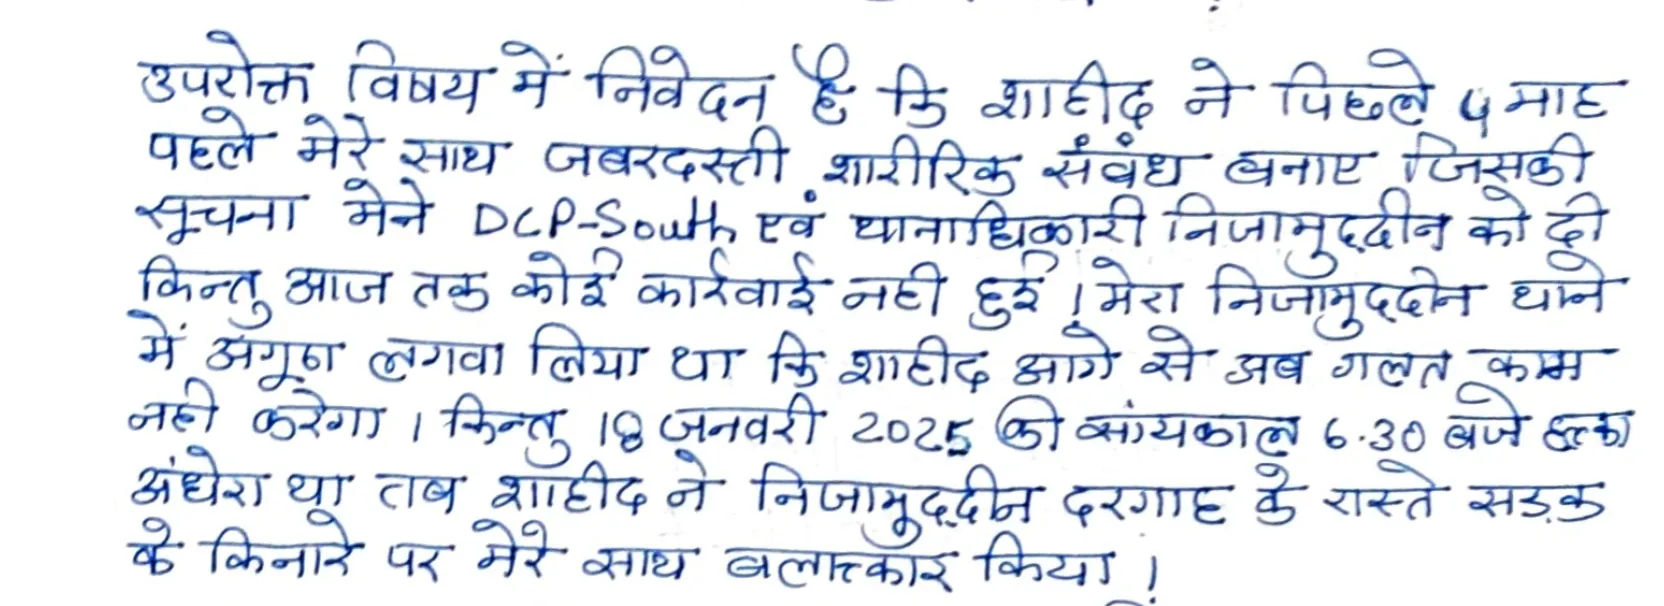 उपरोक्त विषय में निवेदन है कि शाहीद ने पिछले 4 माह
पहले मेरे साथ जबरदस्ती शारीरिक संवंध बनाए जिसकी
सूचना मेने DCP-South एवं थानाधिकारी निजामुद्दीन को दी
किन्तु आज तक कोई कार्रवाई नही हुई। मेरा निजामुद्दीन थाने
में अंगूठा लगवा लिया था कि शाहीद आगे से अब गलत काम
नही करेगा। किन्तु 18 जनवरी 2025 की सांयकाल 6.30 बजे हल्का
अंधेरा था तब शाहीद ने निजामुद्दीन दरगाह के रास्ते सड़क
के किनारे पर मेरे साथ बलात्कार किया।